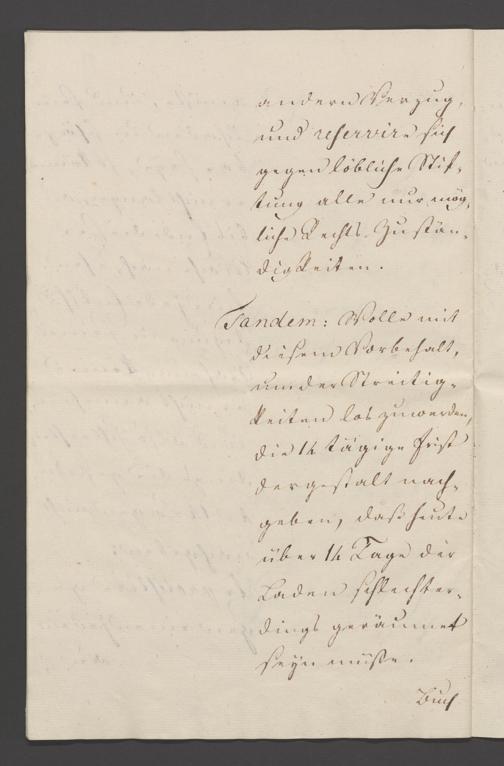 andern Verzug,
und reservire sich
gegen löbliche Stif-
tung alle nur mög-
liche Rechts-Zustän-
digkeiten.
Tandem: Wolle mit
diesem Vorbehalt,
um der Streitig-
keiten los zuwerden,
die 14 tägige Frist
dergestalt nach-
geben, daß heute
über 14 Tage der
Laden schlechter-
dings geräumet
seyn müße.
Buch